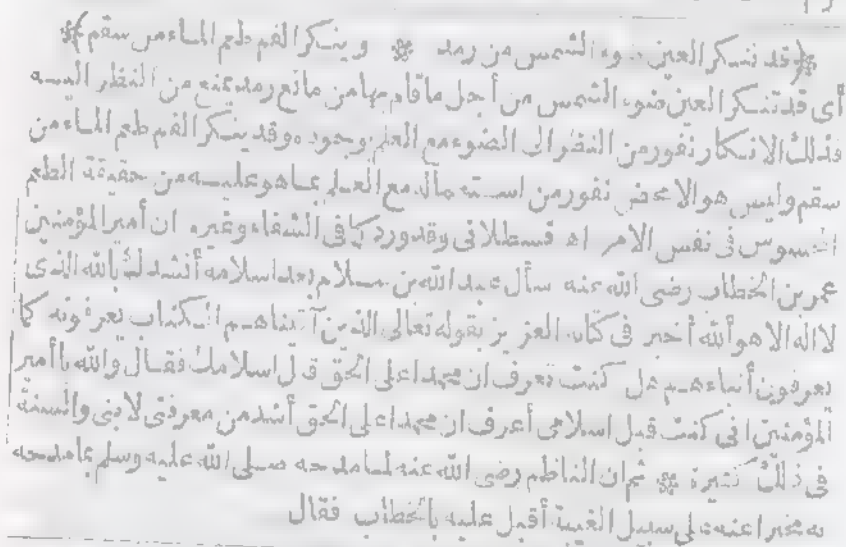 ﴿قد تنكر العين ضوء الشمس من رمد ❋ وينكر الفم طعم الماء من سقم﴾
أى قد تنكر العين ضوء الشمس من أجل ما قام بها من مانع رمد يمنع من النظر اليه
فذلك الانكار نفور من النظر الى الضوء مع العلم بوجوده وقد ينكر الفم طعم الماء من
سقم وليس هو الا محض نفور من استعماله مع العلم بما هو عليه من حقيقة الطعم
المحسوس فى نفس الامر اه قسطلانى وقد ورد كما فى الشفاء وغيره ان أمير المؤمنين
عمر بن الخطاب رضى الله عنه سأل عبد الله بن سلام بعد اسلامه أنشدك بالله الذى
لا اله الا هو ألله أخبر فى كتابه العزيز بقوله تعالى الذين آتيناهم الكتاب يعرفونه كما
يعرفون أبناءهم هل كنت تعرف ان محمدا على الحق قبل اسلامك فقال والله يا أمير
المؤمنين انى كنت قبل اسلامى أعرف ان محمدا على الحق أشد من معرفتى لابنى والسنة
فى ذلك كثيرة ❋ ثم ان الناظم رضى الله عنه لما مدحه صلى الله عليه وسلم بما مدحه
به مخبرا عنه على سبيل الغيبة أقبل عليه بالخطاب فقال